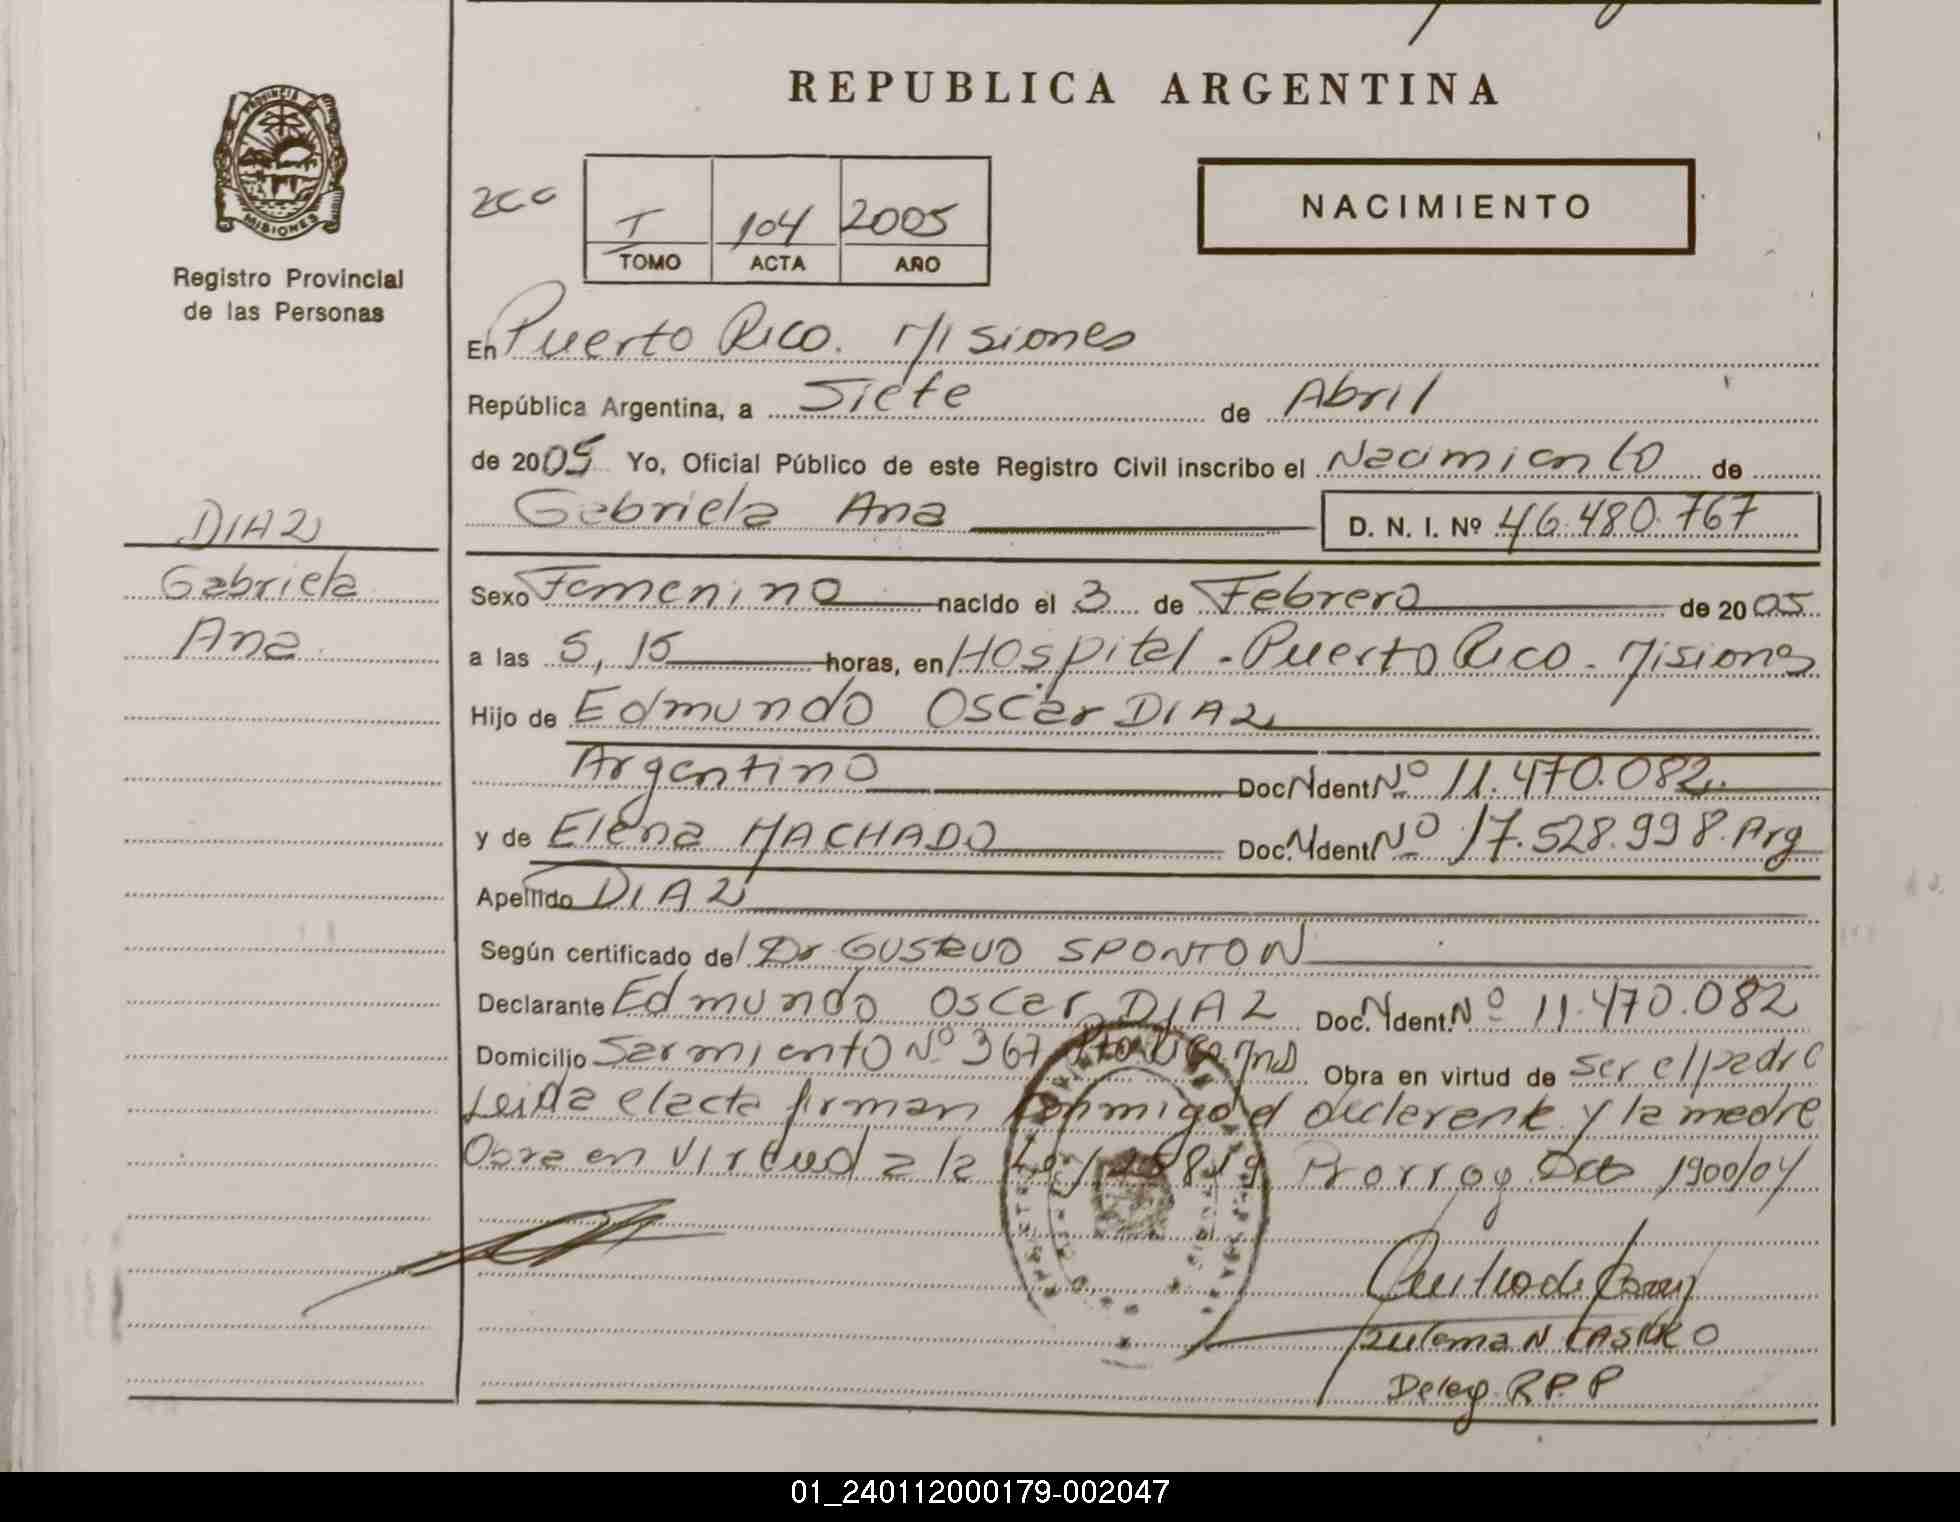 REPUBLICA ARGENTINA
PROVINCIA DE
MISIONES
Registro Provincial
de las Personas
T 104 2005
TOMO ACTA AÑO
NACIMIENTO
En Puerto Rico. Misiones
República Argentina, a Siete de Abril
de 2005 Yo, Oficial Público de este Registro Civil inscribo el Nacimiento de
Gabriela Ana D. N. I. Nº 46.480.767
DIAZ
Gabriela
Ana
Sexo Femenino nacido el 3 de Febrero de 2005
a las 5,15 horas, en Hospital - Puerto Rico - Misiones
Hijo de Edmundo Oscar DIAZ
Argentino Doc. Ident. Nº 11.470.082
y de Elena MACHADO Doc. Ident. Nº 17.528.998. Arg
Apellido DIAZ
Según certificado del Dr Gustavo SPONTON
Declarante Edmundo Oscar DIAZ Doc. Ident. Nº 11.470.082
Domicilio Sarmiento Nº 367 Pto Rico Mns Obra en virtud de ser el padre
Leida el acta firman conmigo el declarante y la madre
Obra en virtud a la Ley 25819 Prorrog Dcto 1900/04
Zulema N CASTRO
Deleg. R.P.P
01_240112000179-002047